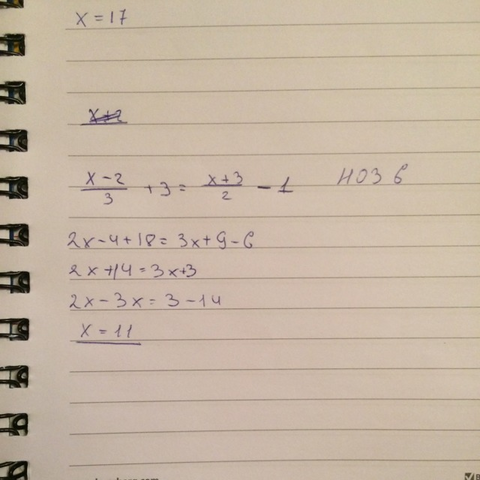 x = 17
x+2
(x-2)/3 + 3 = (x+3)/2 - 1 НОЗ 6
2x-4+18 = 3x+9-6
2x+14 = 3x+3
2x-3x = 3-14
x = 11